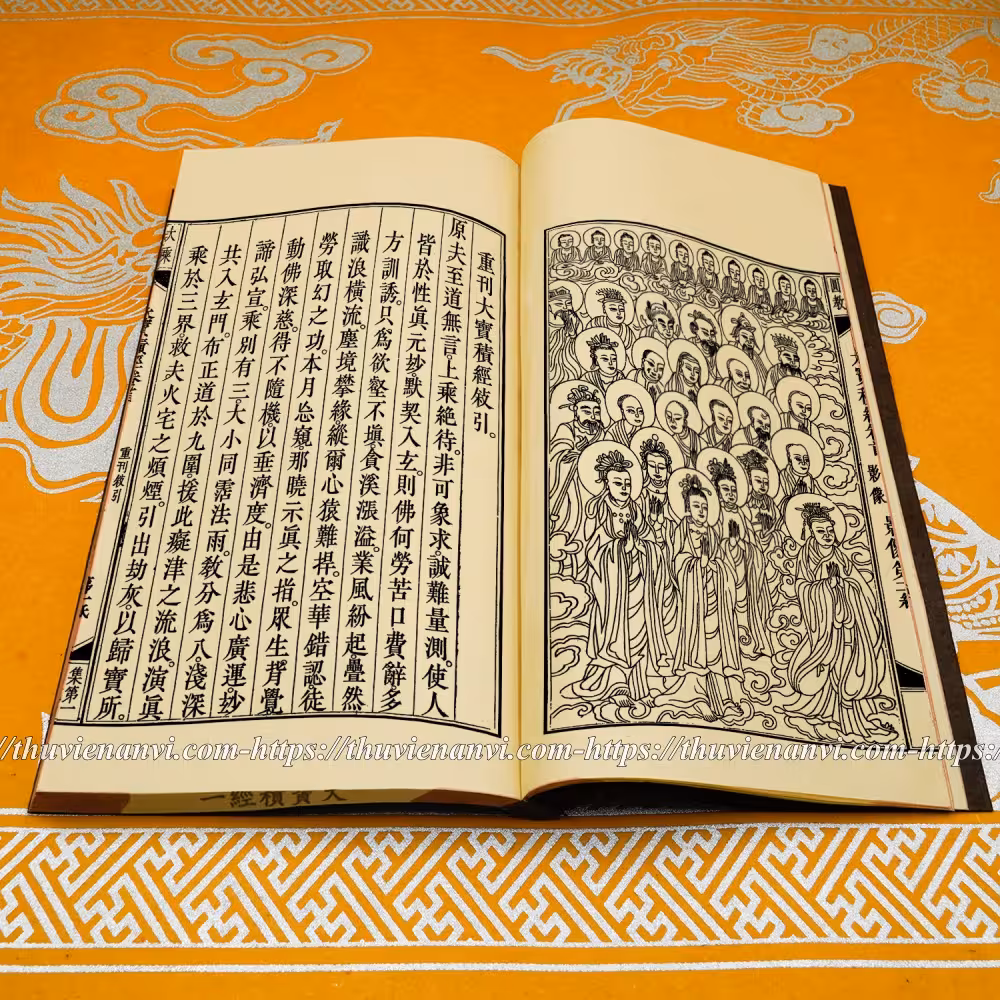 圓教
影像
重刊大寶積經敘引。
原夫至道無言。上乘絕待。非可象求。誠難量測。使人
皆於性眞。元妙默契入玄。則佛何勞苦口費辭多
方訓誘。只爲欲壑不塡。貪溪漲溢。業風紛起疊然
識浪橫流。塵境攀緣縱爾心猿難捍。空華錯認徒
勞取幻之功。本月忘窺那曉示眞之指。眾生背覺
動佛深慈。得不隨機。以垂濟度。由是悲心廣運。妙
諦弘宣。乘別有三大小同霑法雨。教分爲八淺深
共入玄門。布正道於九圍。援此癡津之流浪。演眞
乘於三界救夫火宅之煩煙。引出劫灰。以歸寶所。
重刊敘引
集第一
大寶積經一
//thuvienanvi.com-https://thuvienanvi.com-https://thuvienanvi.com-https:/